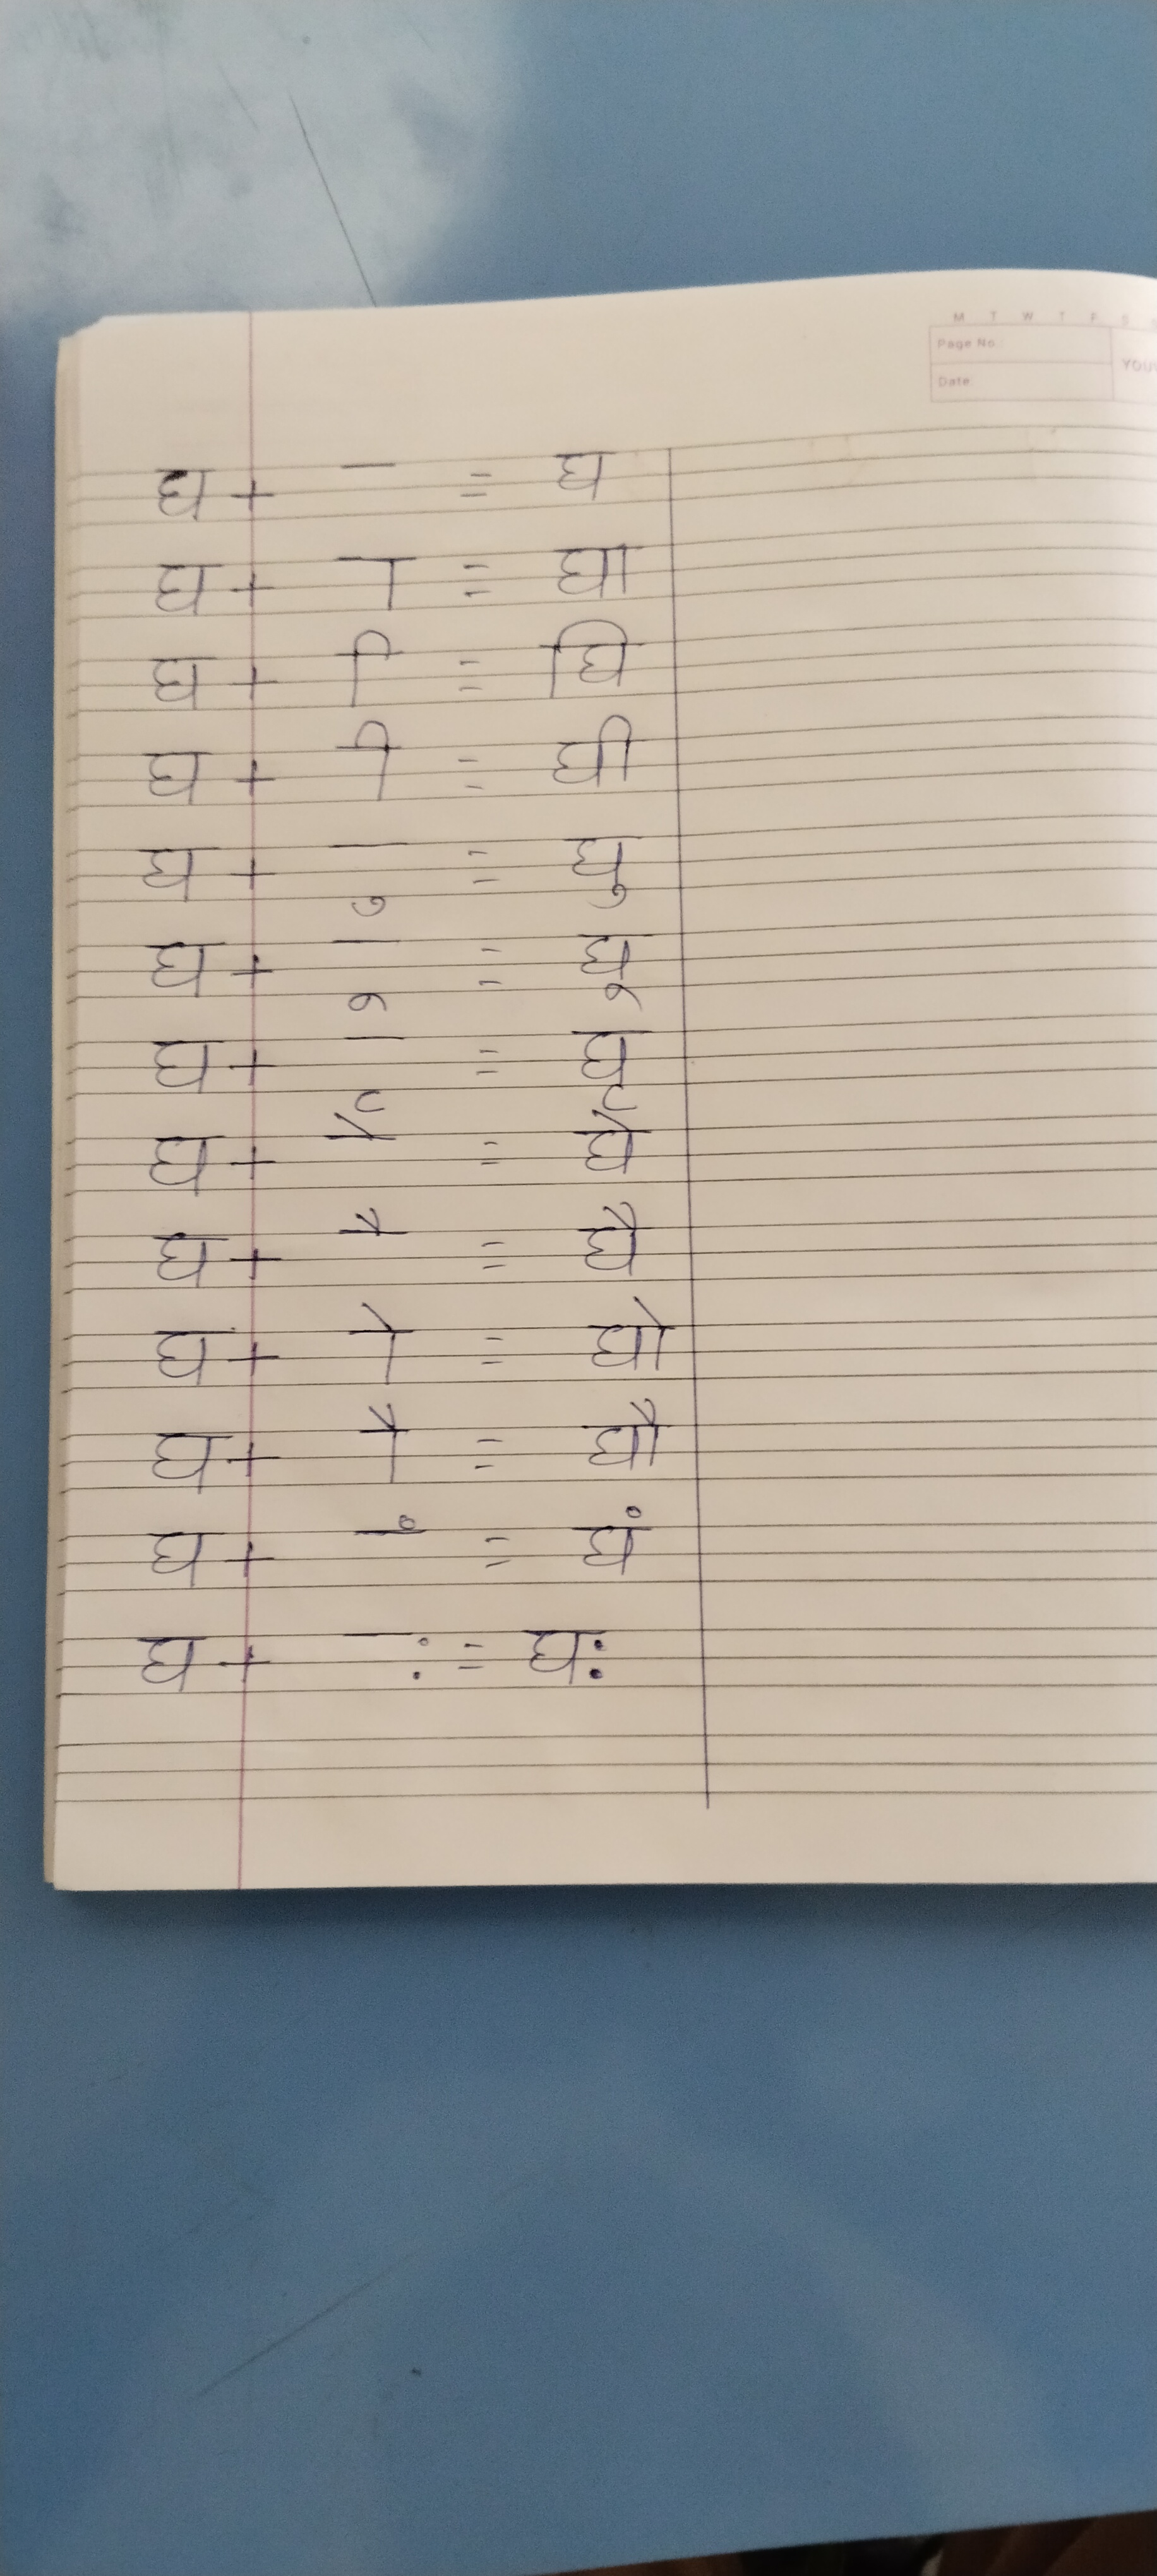 M T W T F S
Page No.:
YOUV
Date:
घ + – = घ
घ + ा = घा
घ + ि = घि
घ + ी = घी
घ + ु = घु
घ + ू = घू
घ + ृ = घृ
घ + े = घे
घ + ै = घै
घ + ो = घो
घ + ौ = घौ
घ + ं = घं
घ + ः = घः